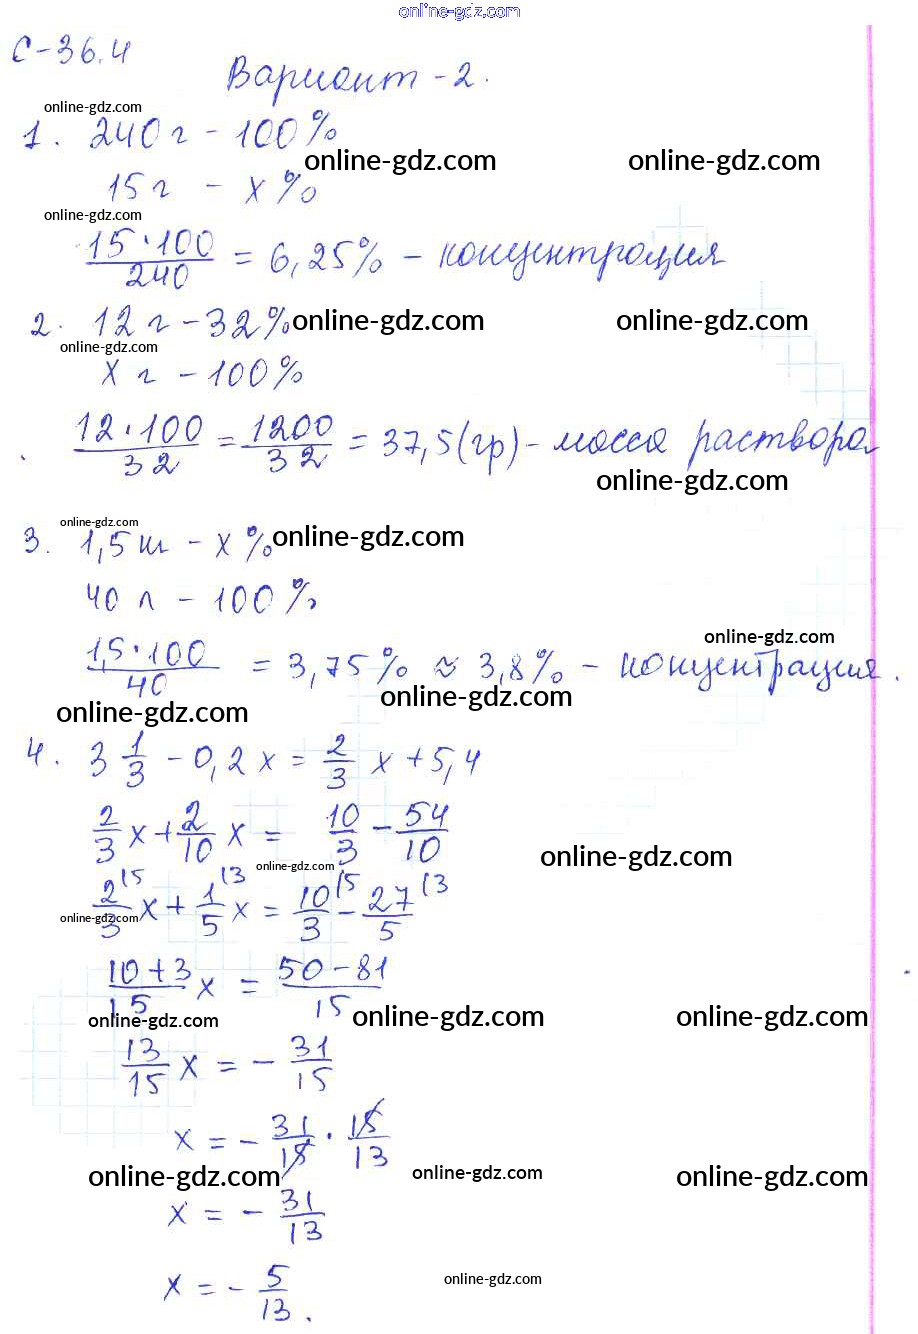 online-gdz.com
С-36.4
Вариант-2.
online-gdz.com
1. 240 г - 100%
online-gdz.com online-gdz.com
15 г - x%
online-gdz.com
15·100/240 = 6,25% - концентрация
2. 12 г - 32%
online-gdz.com online-gdz.com
online-gdz.com
x г - 100%
12·100/32 = 1200/32 = 37,5 (гр) - масса раствора
online-gdz.com
online-gdz.com
3. 1,5 ш - x%
online-gdz.com
40 л - 100%
online-gdz.com
1,5·100/40 = 3,75% ≈ 3,8% - концентрация.
online-gdz.com online-gdz.com
4. 3 1/3 - 0,2x = 2/3 x + 5,4
2/3 x + 2/10 x = 10/3 - 54/10
online-gdz.com
online-gdz.com
2/3 (5 x + 1/5 (3 x = 10/3 (5 - 27/5 (3
online-gdz.com
10+3/15 x = 50-81/15
online-gdz.com online-gdz.com online-gdz.com
13/15 x = - 31/15
x = - 31/15 · 15/13
online-gdz.com online-gdz.com online-gdz.com
x = - 31/13
x = - 5/13.
online-gdz.com